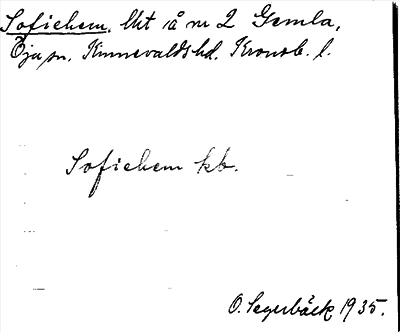 Sofiehem, lht å nr 2 Gemla,
Öja sn, Kinnevalds hd. Kronob. l.
Sofiehem kb.
O. Segerbäck 1935.